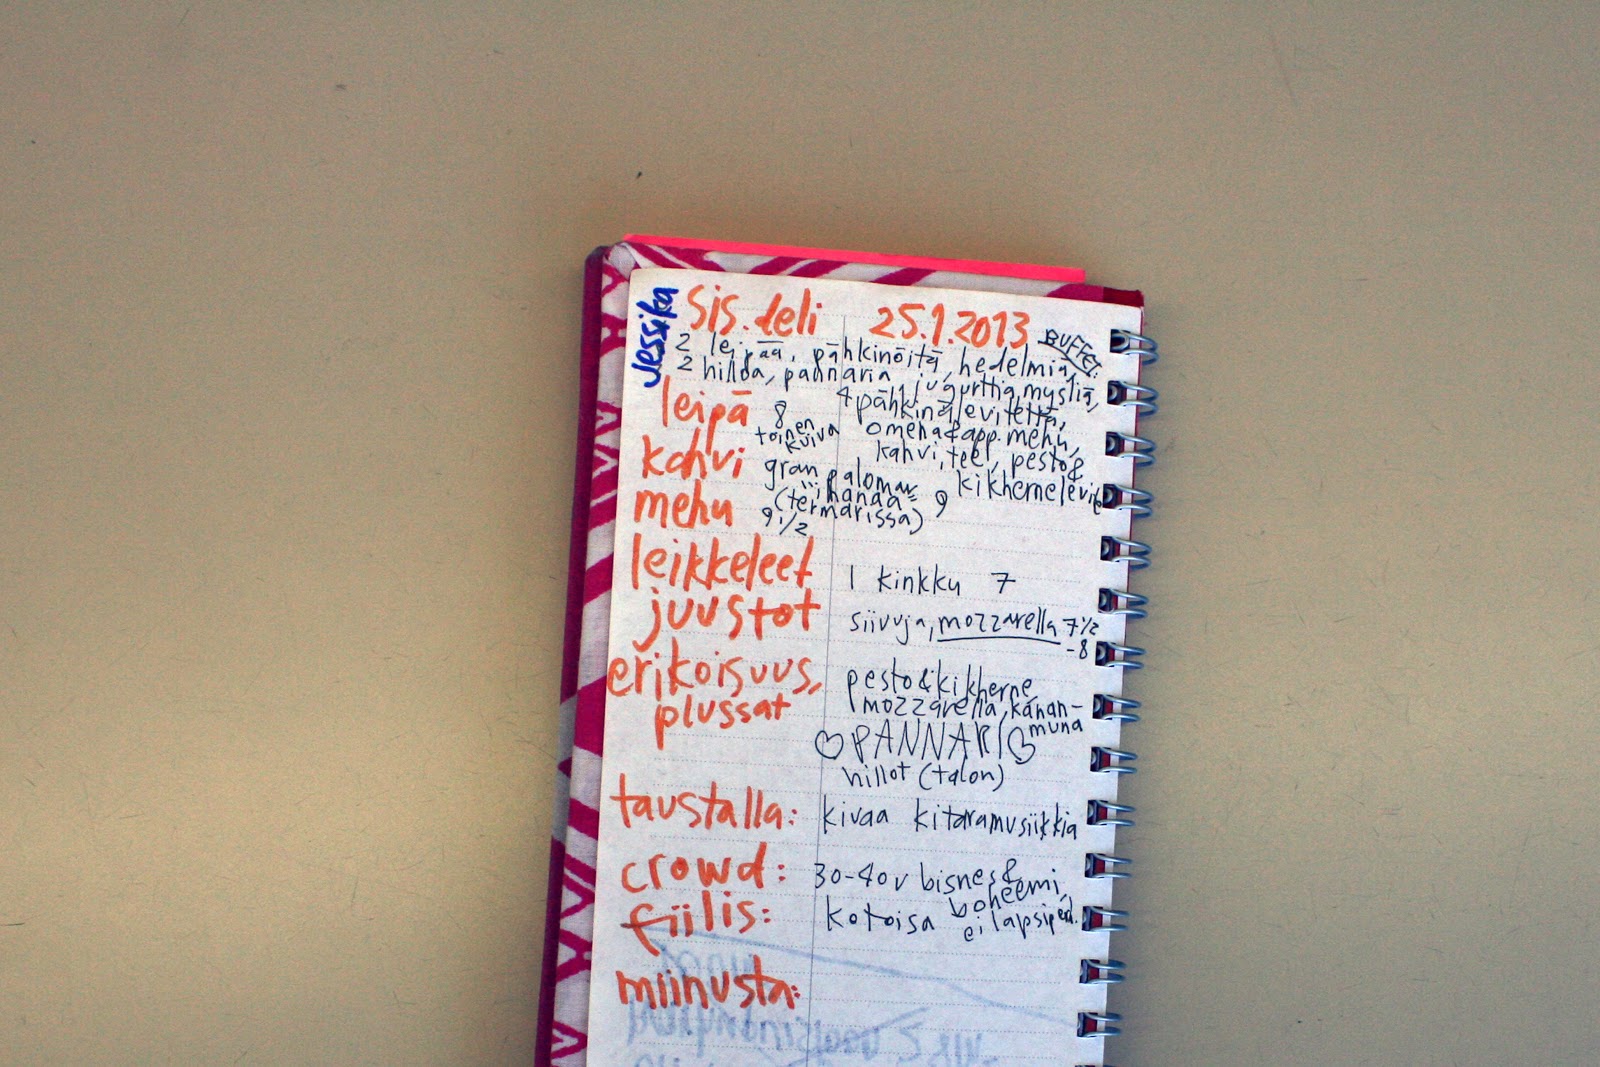 Jessika
sis. deli 25.1.2013
BUFFET:
2 leipää, pähkinöitä, hedelmiä,
2 hilloa, pannaria, jugurttia, mysliä,
4 pähkinälevitettä,
omena & app. mehu,
kahvi, tee, pesto &
kikhernelevite
leipä 8
toinen
kuiva
kahvi gran palomar 9
(termarissa)
mehu 9 1/2
leikkeleet 1 kinkku 7
juustot siivuja, mozzarella 7 1/2
-8
erikoisuus, pesto & kikherne,
plussat mozzarella, kanan-
muna
♡PANNARI♡
hillot (talon)
taustalla: kivaa kitaramusiikkia
crowd: 30-40v bisnes &
boheemi,
ei lapsiper.
fiilis: kotoisa
miinusta: